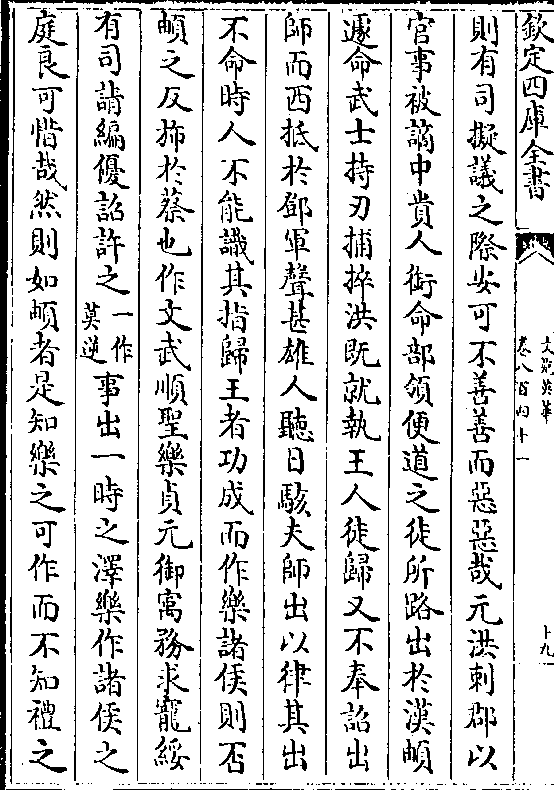 欽定四庫全書
文苑英華
卷八百四十一
十九
則有司擬議之際安可不善善而惡惡哉元洪刺郡以
官事被謫中貴人銜命部領便道之徒所路出於漢頔
遽命武士持刃捕捽洪既就執王人徒歸又不奉詔出
師而西抵於鄧軍聲甚雄人聽日駭夫師出以律其出
不命時人不能識其指歸王者功成而作樂諸侯則否
頔之反斾於蔡也作文武順聖樂貞元御寓務求寵綏
有司請編優詔許之一作莫逆事出一時之澤樂作諸侯之
庭良可惜哉然則如頔者是知樂之可作而不知禮之